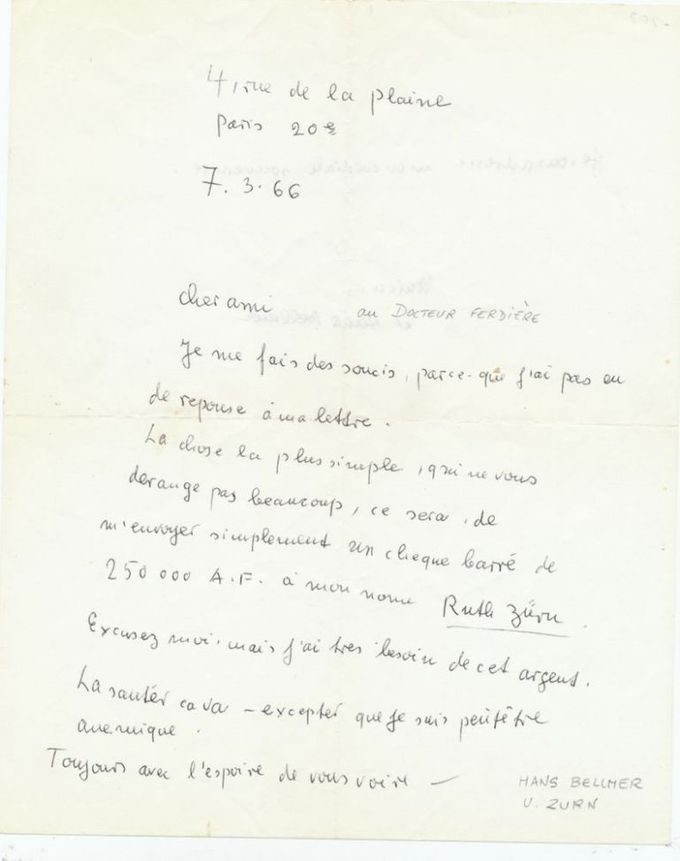 4 rue de la plaine
Paris 20e
7.3.66
cher ami au DOCTEUR FERDIÈRE
Je me fais des soucis, parce-que j'ai pas eu
de reponse à ma lettre.
La chose la plus simple, qui ne vous
derange pas beaucoup, ce sera, de
m'envoyer simplement un cheque barré de
250 000 A.F. à mon nome Ruth Zürn.
Excusez moi, mais j'ai tres besoin de cet argent.
La santér ca va – excepter que je suis peütêtre
anemique.
Toujours avec l'espoire de vous voire –
HANS BELLMER
U. ZURN